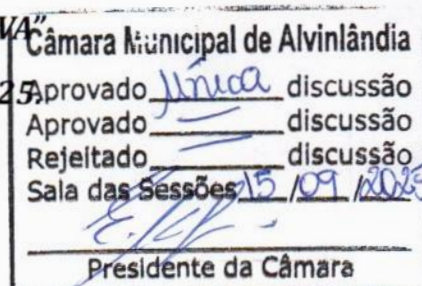 VA"
Câmara Municipal de Alvinlândia
25.
Aprovado Única discussão
Aprovado — discussão
Rejeitado — discussão
Sala das Sessões 15 / 09 / 2025
Presidente da Câmara